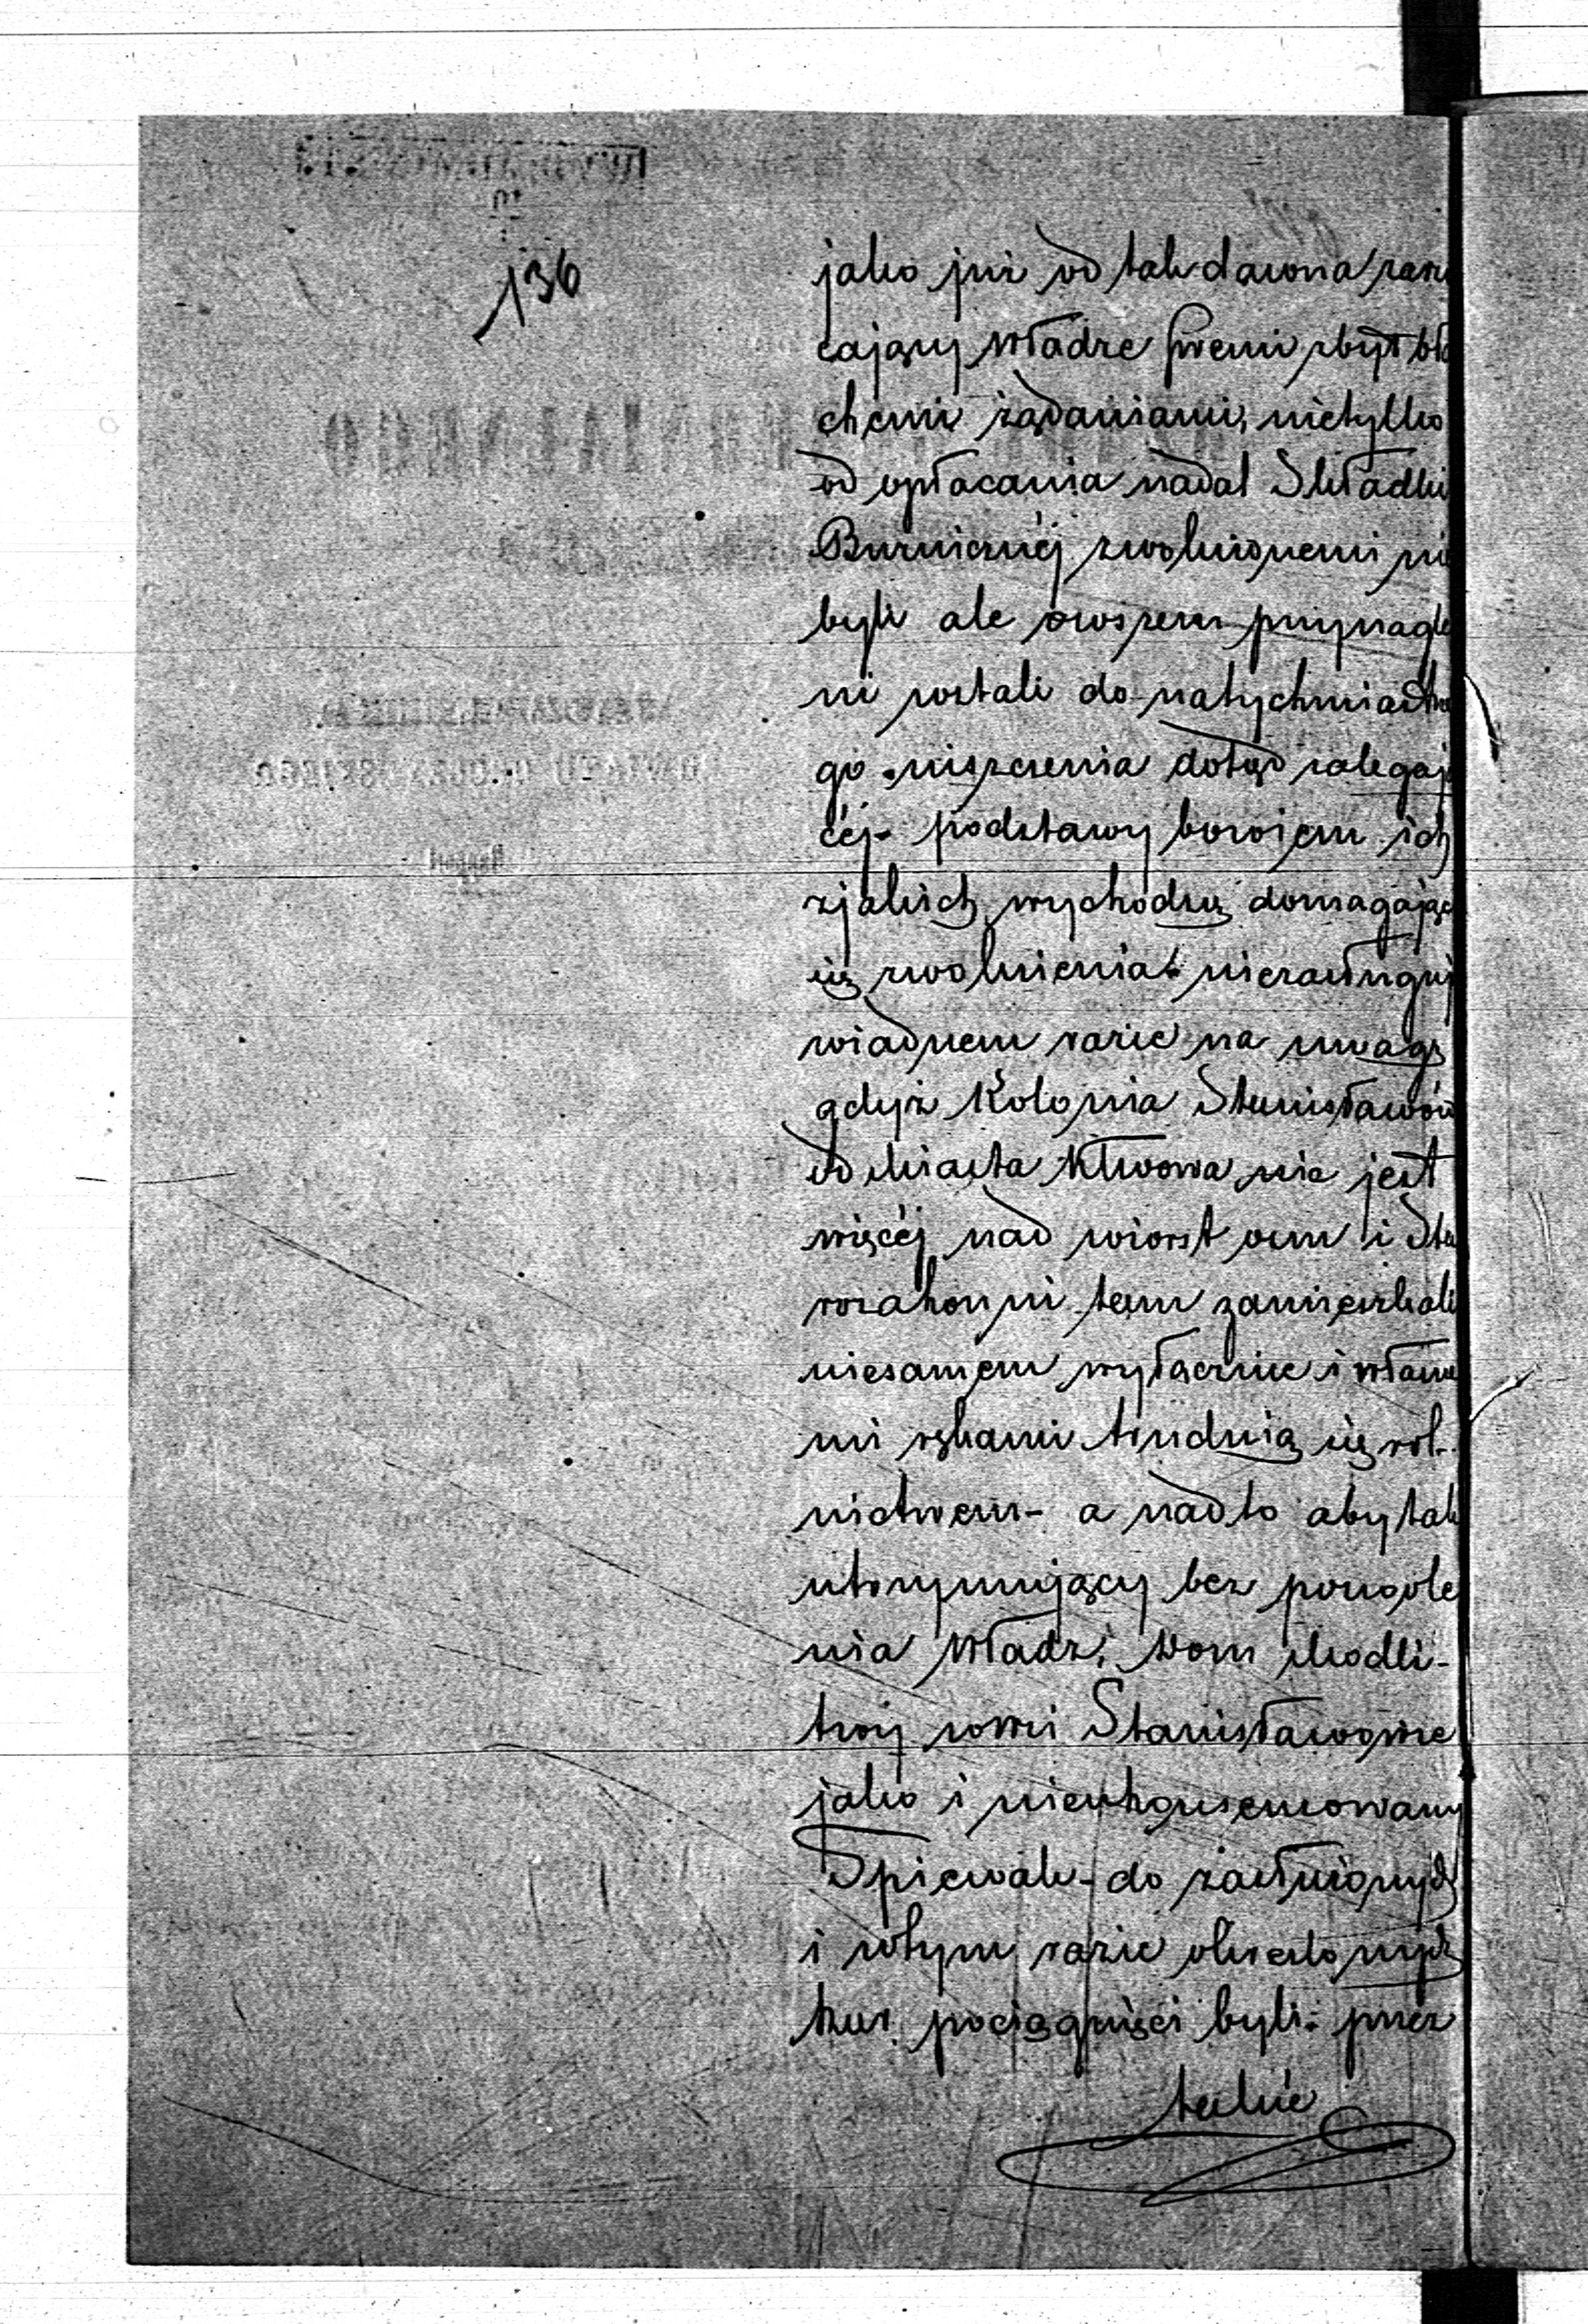 136
jako już od tak dawna zarzu
cający Władze swemi zbyt bła
chemi żądaniami, nietylko
od opłacania nadal Składki
Bużnicznéj zwolnionemi nie
byli ale owszem przynagle
ni zostali do natychmiastowe
go niszczenia dotąd zalegają
céj - podstawy bowiem ich
z jakich wychodzą domagając
się zwolnienia - niezasługują
w żadnem razie na uwagę
gdyż Kolonia Stanisławów
od Miasta Klwowa nie jest
więcéj nad wiorst osm i Sta
rozakonni tam zamieszkali
niesamem wyłącznie i własne
mi rękami trudnią się rol-
nictwem - a nadto aby tak
utrzymujący bez pozwole
nia Władz, Dom Modli-
twy w wsi Stanisławowie
jako i nieukonsensowany
Spiewak - do zasłużonych
i w tym razie określonych
kar pociągnięci byli - przez
takie